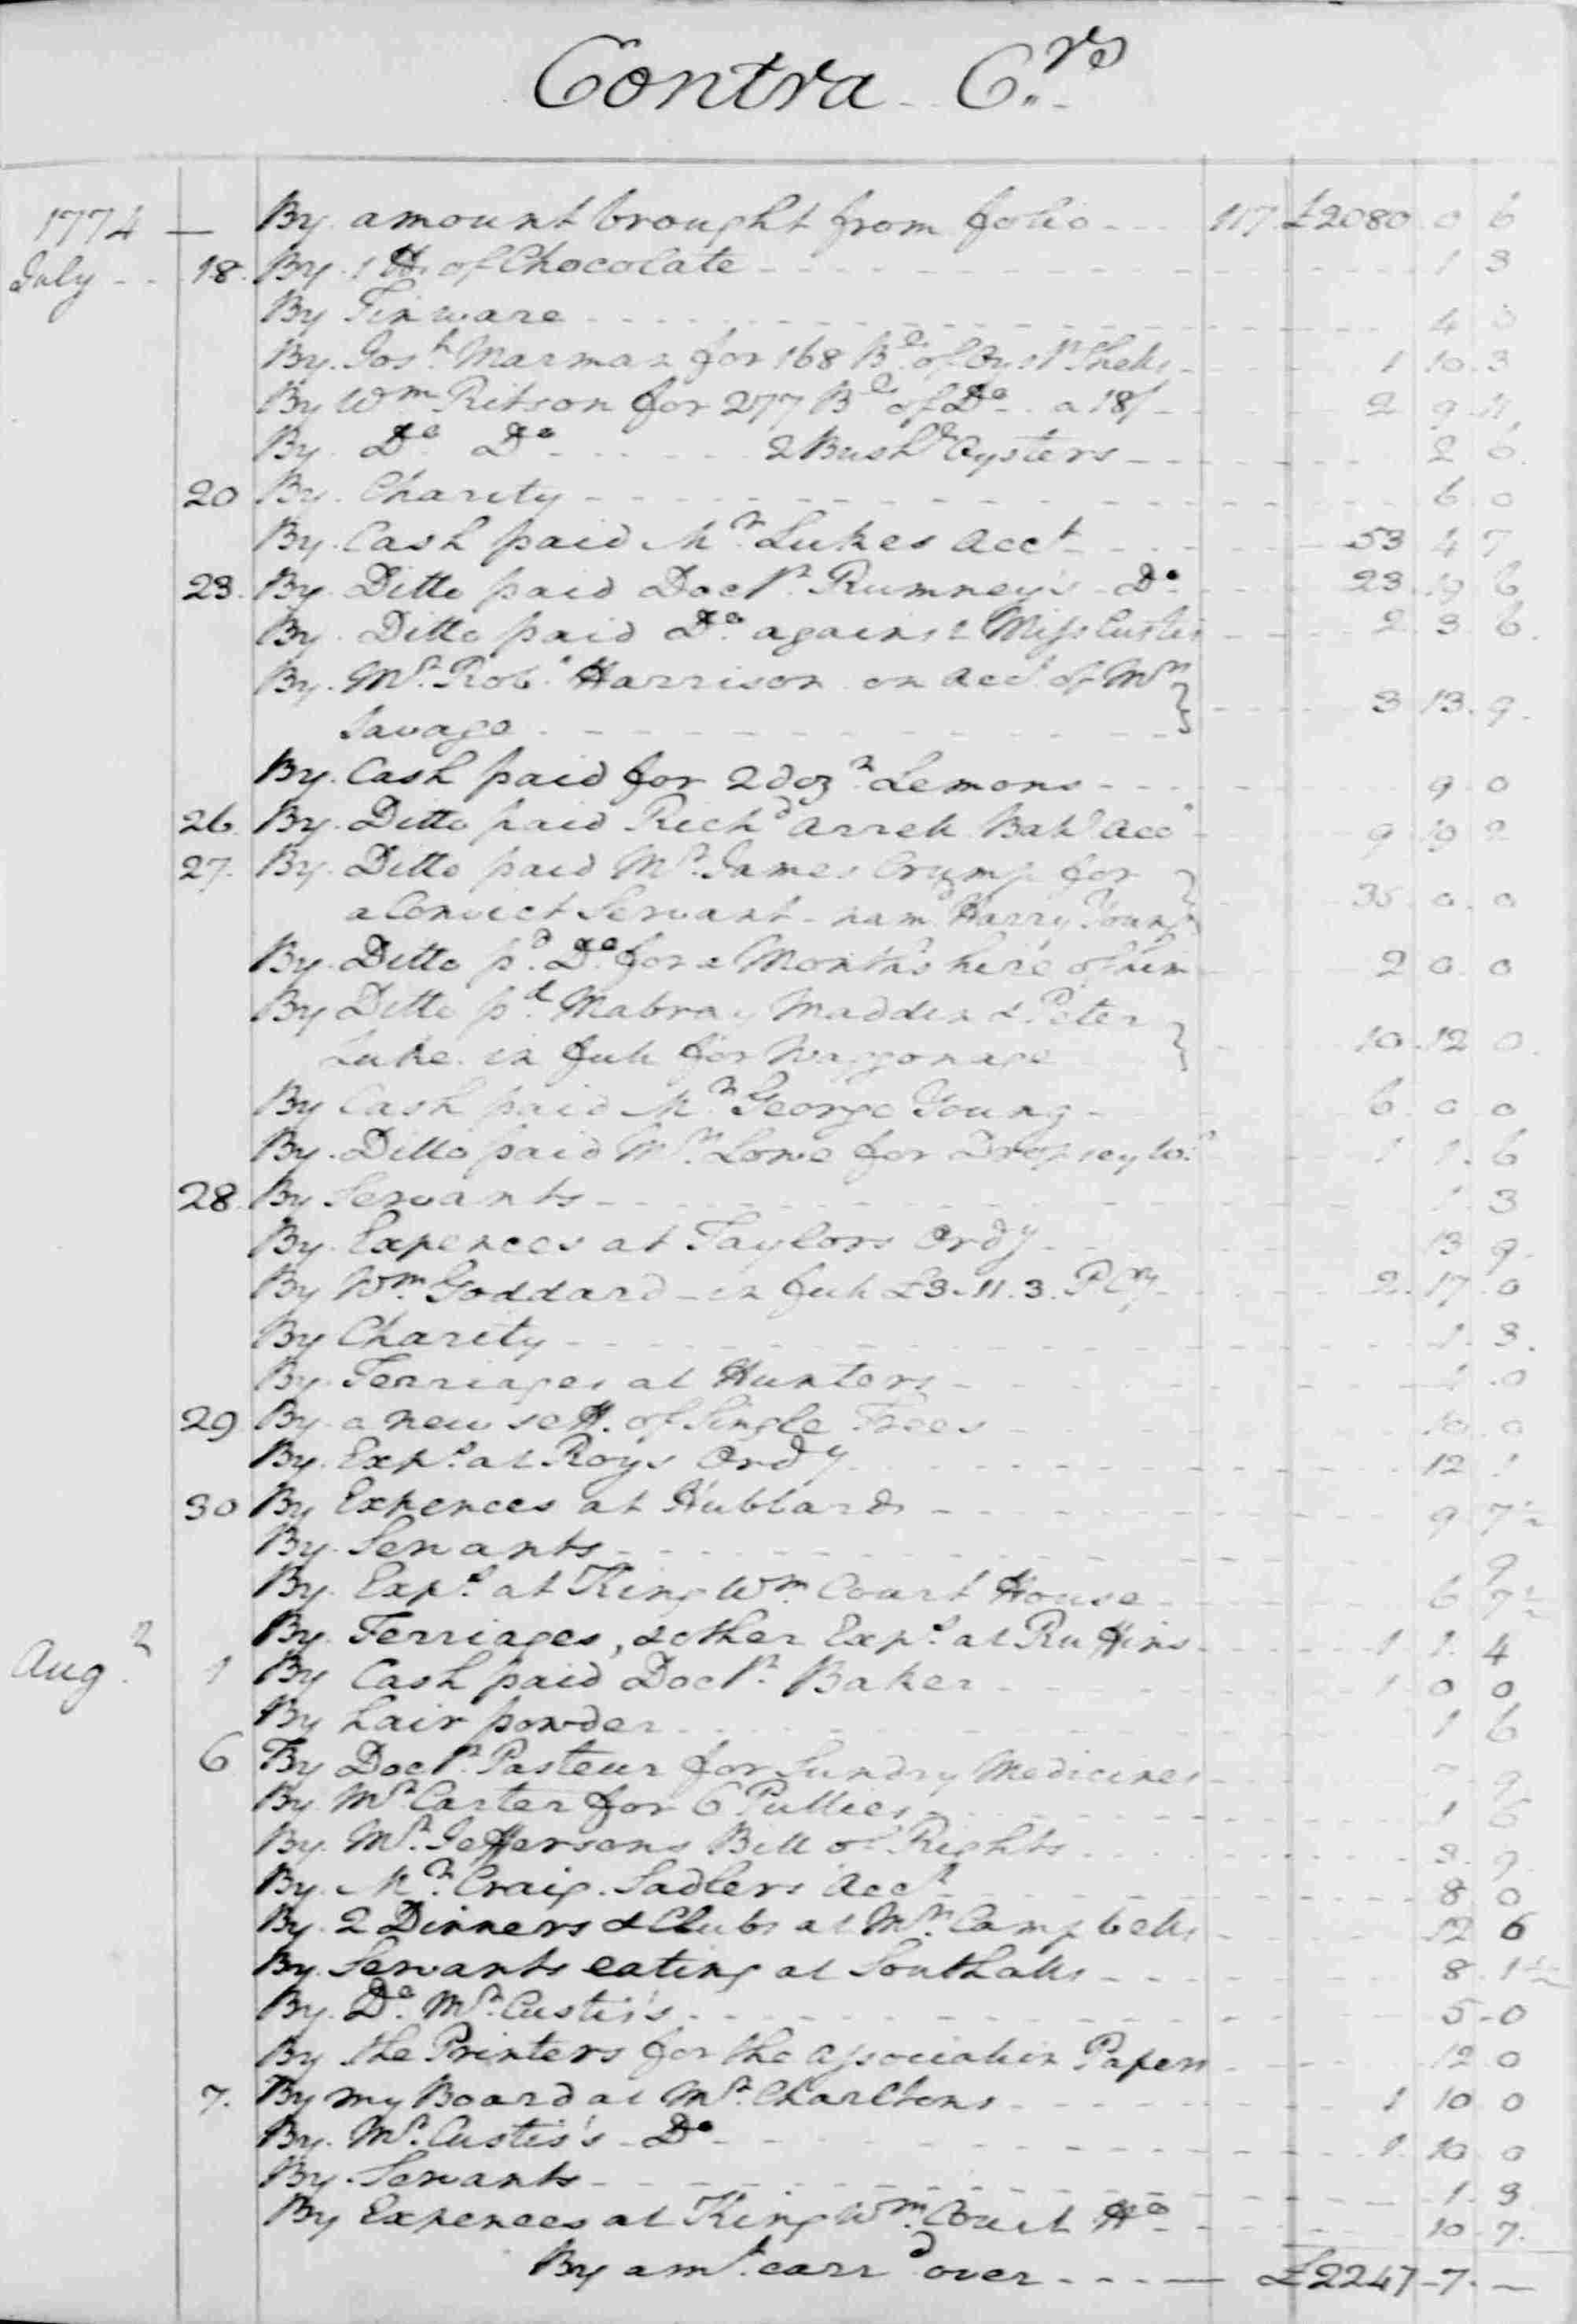 Contra Crs
1774 — By amount brought from folio 117 £2080 0 6
July 18. By 1 ℔ of Chocolate 1 3
By Tinware 4
By Josh Marman for 168 Bls of Oystr Shells 1 10 3
By Wm Ritson for 277 Bls of Do a 18/ 2 9 11
By Do Do 2 Bushls Oysters 2 6
20 By Charity 6 0
By Cash paid Mr Lukes Acct 53 4 7
23. By Ditto paid Doctr Rumney's Do 23 19 6
By Ditto paid Do against Miss Custis 2 3 6
By Mr Robt Harrison on Acct of Mrs
Savage 3 13 9
By Cash paid for 2 dozn Lemons 9 0
26 By Ditto paid Richd Arrell Balle Acct 9 19 2
27. By Ditto paid Mr James Crump for
a Convict Servant namd Harry Young 35 0 0
By Ditto pd Do for a Month's hire of him 2 0 0
By Ditto pd Mabray Madden & Peter
Luke in full for Waggonage 10 12 0
By Cash paid Mr George Young 6 0 0
By Ditto paid Mr Lowe for Dropsey Wr 1 1 6
28. By Servants 1 3
By Expences at Taylors Ordy 13 9
By Wm Goddard in full £3.11.3. P Cy 2 17 0
By Charity 1 3
By Ferriages at Hunters 1 0
29 By a new sett of Single Trees 10 0
By Exps at Roys Ordy 12 1
30 By Expences at Hubbards 9 7½
By Servants 9
By Exps at King Wm Court House 6 7½
By Ferriages, & other Exps at Ruffins 1 1 4
Augt 1 By Cash paid Doctr Baker 1 0 0
By hair powder 1 6
6 By Doctr Pasteur for Sundry Medicines 9
By Mr Carter for 6 Pullies 1 6
By Mr Jeffersons Bill of Rights 3 9
By Mr Craig Sadlers Acct 8 0
By 2 Dinners & Clubs at Mrs Campbells 12 6
By Servants eating at Southalls 8 1½
By Do Mr Custis's 5 0
By the Printers for the Association Papers 12 0
7. By my Board at Mrs Charltons 1 10 0
By Mr Custis's Do 1 10 0
By Servants 1 3
By Expences at King Wm Court Ho 10 7
By amt carrd over £2247-7-—